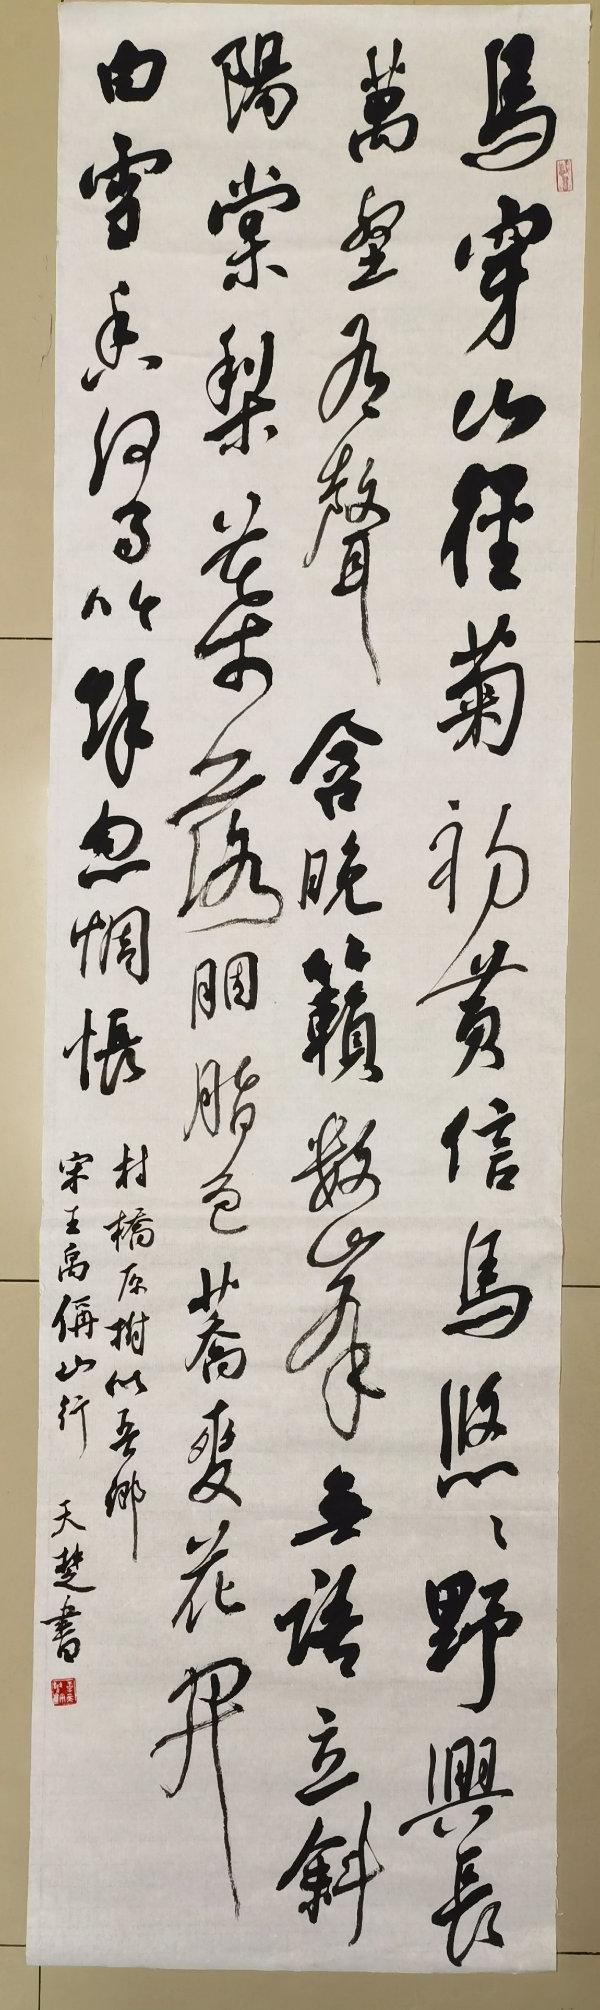 馬穿山徑菊初黃信馬悠〻野興長
萬壑有聲含晚籟數峯無語立斜
陽棠梨葉落胭脂色蕎麥花開
白雪香何事吟餘忽惆悵
村橋原樹似吾鄉
宋王禹偁山行 天楚書